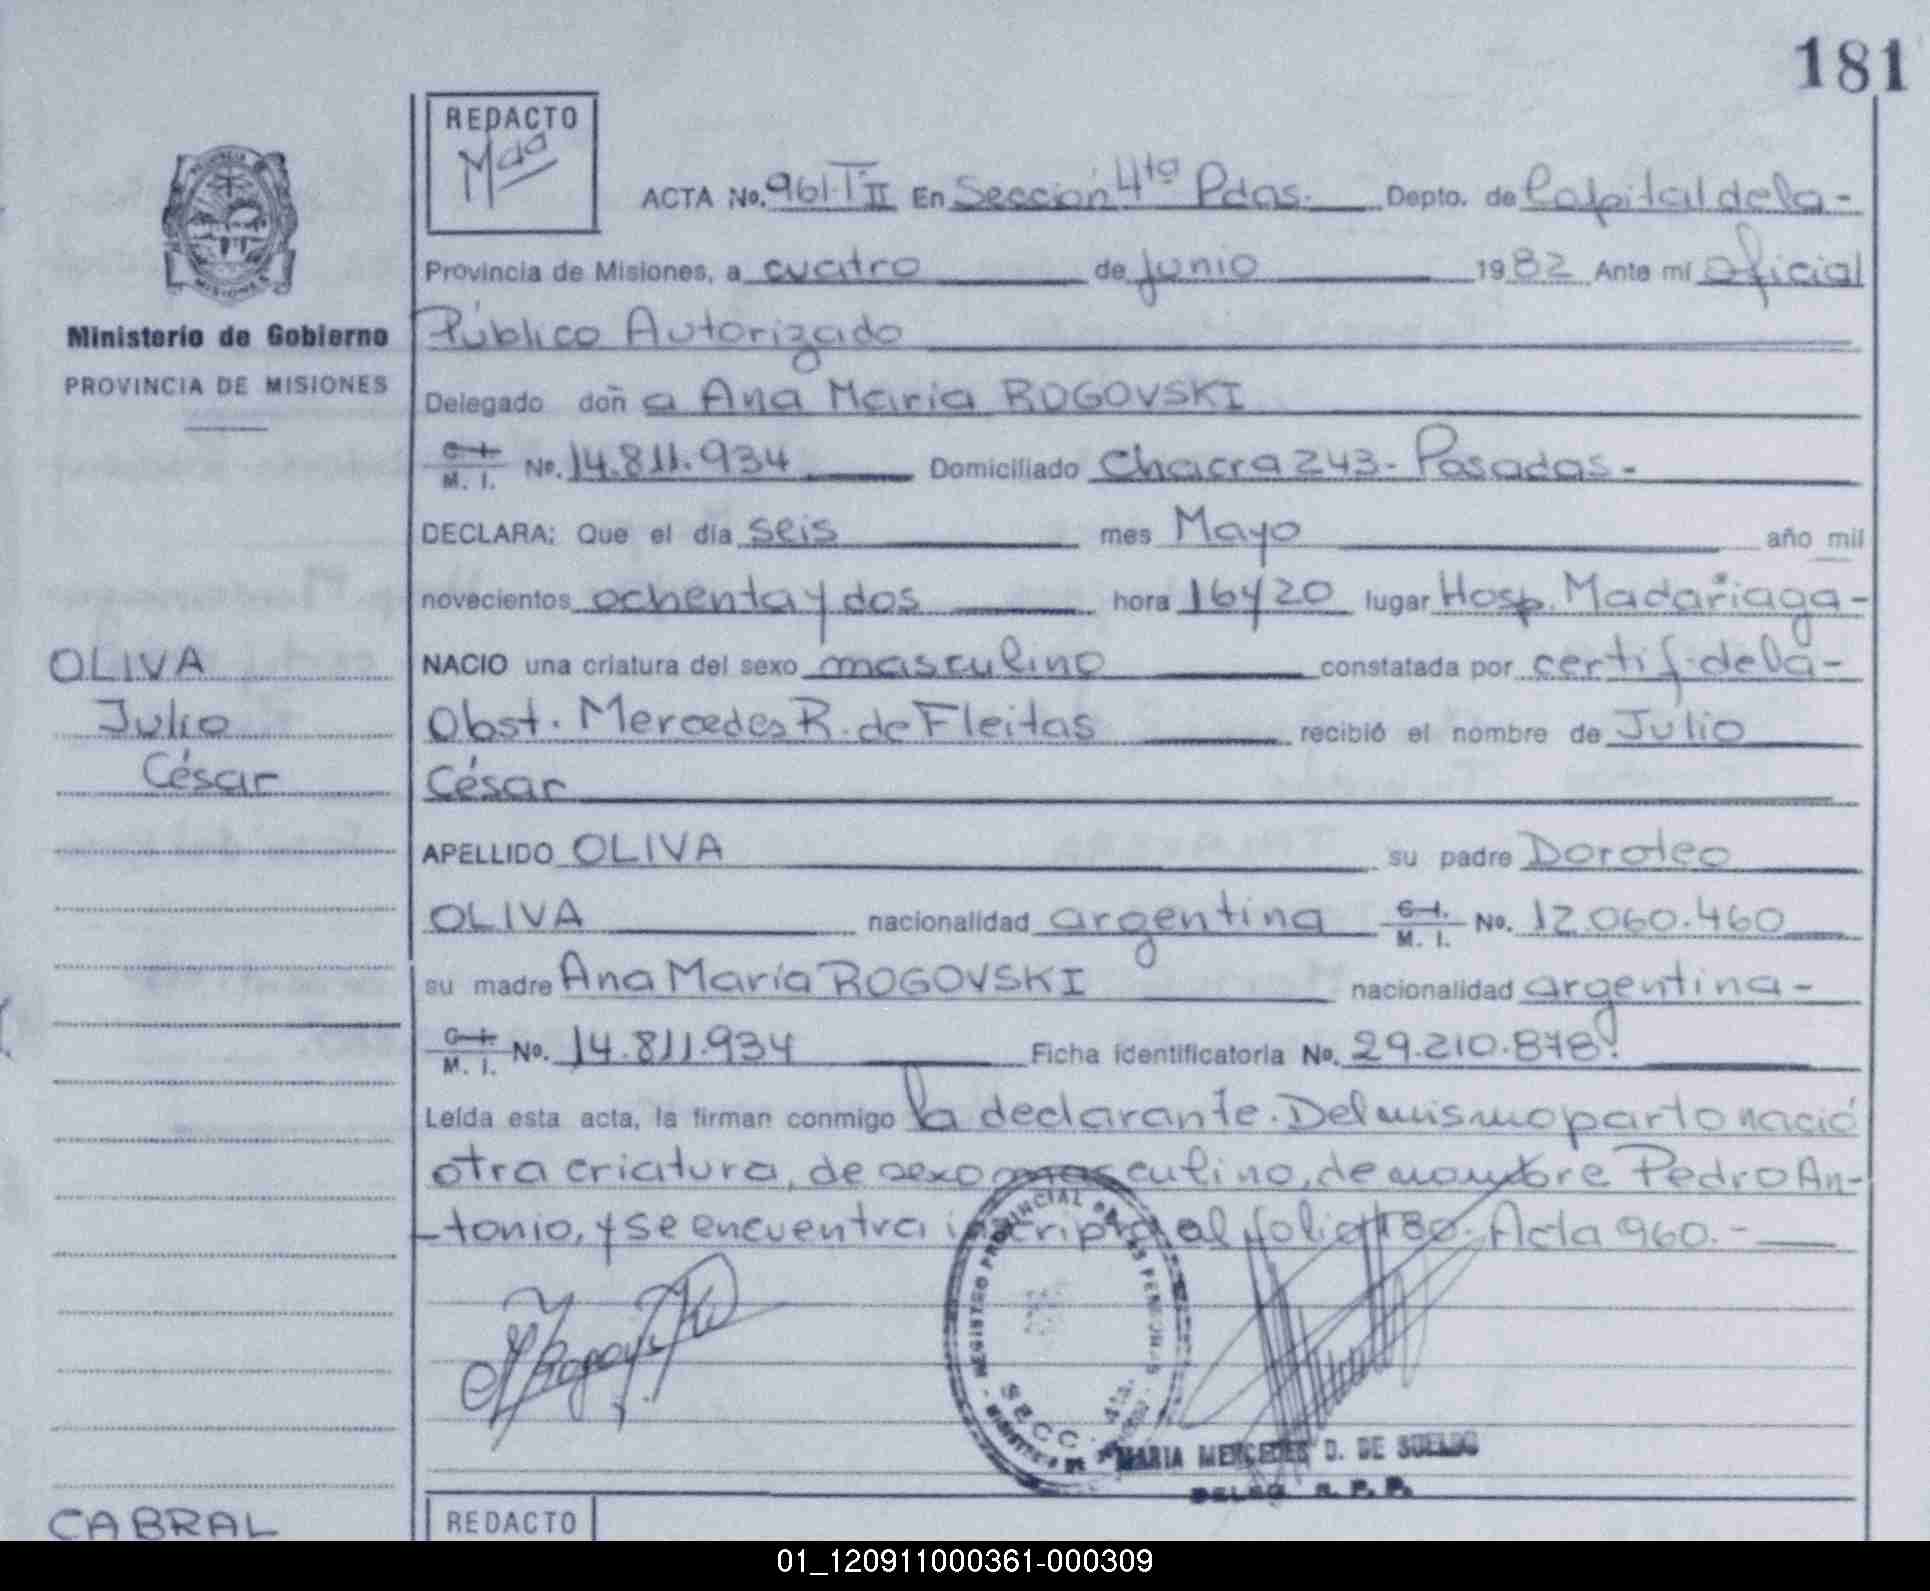 181
REDACTO
Mªª
ACTA No. 961-T II En Sección 4ta Pdas. Depto. de Capital de la-
Provincia de Misiones, a cuatro de junio 1982 Ante mí Oficial
Ministerio de Gobierno
Público Autorizado
PROVINCIA DE MISIONES
Delegado doñ a Ana Maria ROGOVSKI
C. I. M. I. No. 14.811.934 Domiciliado Chacra 243- Posadas-
DECLARA: Que el día seis mes Mayo año mil
novecientos ochenta y dos hora 16y20 lugar Hosp. Madariaga-
OLIVA
NACIO una criatura del sexo masculino constatada por certif. de la-
Julio
Obst. Mercedes R. de Fleitas recibió el nombre de Julio
César
César
APELLIDO OLIVA su padre Doroteo
OLIVA nacionalidad argentina C. I. M. I. No. 12.060.460
su madre Ana María ROGOVSKI nacionalidad argentina-
C. I. M. I. No. 14.811.934 Ficha identificatoria No. 29.210.878
Leída esta acta, la firman conmigo la declarante. Del mismo parto nació
otra criatura, de sexo masculino, de nombre Pedro An-
-tonio, y se encuentra inscripta al folio 180. Acta 960.-
REGISTRO PROVINCIAL DE LAS PERSONAS
SECC. 4ta.
MARIA MERCEDES D. DE SUELDO
DELEG. R. P. P.
CABRAL
REDACTO
01_120911000361-000309